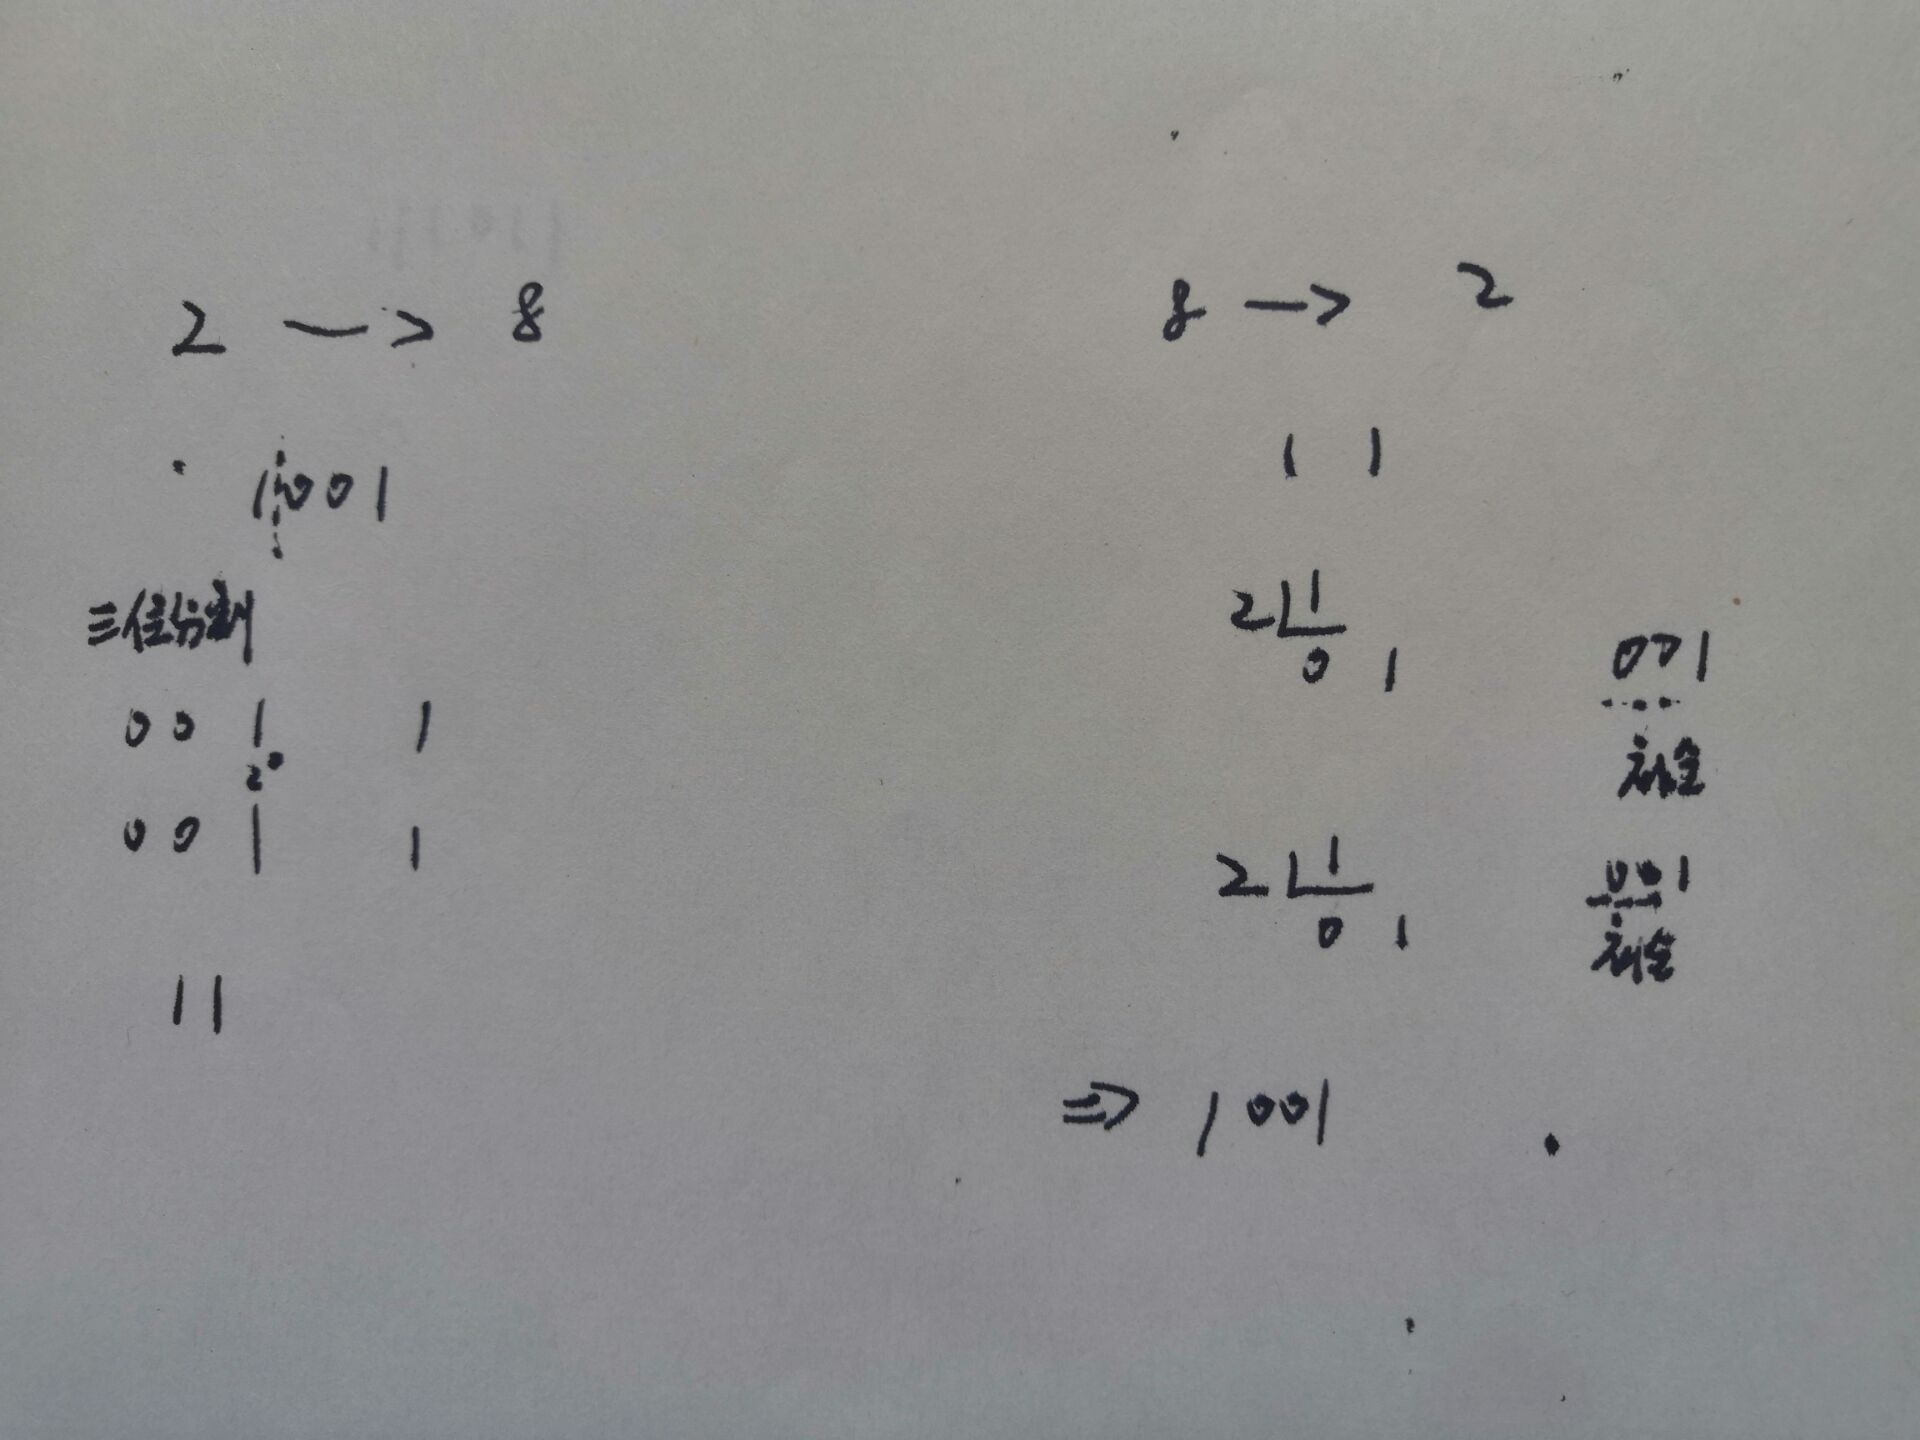 2 —> 8
1001
三位分割
0 0 1 1
2⁰
0 0 1 1
11
8 —> 2
1 1
2 1
0 1
001
补全
2 1
0 1
001
补全
=> 1001